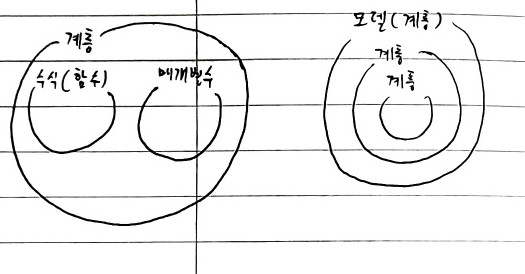 계층
수식(함수)
매개변수
모델(계층)
계층
계층